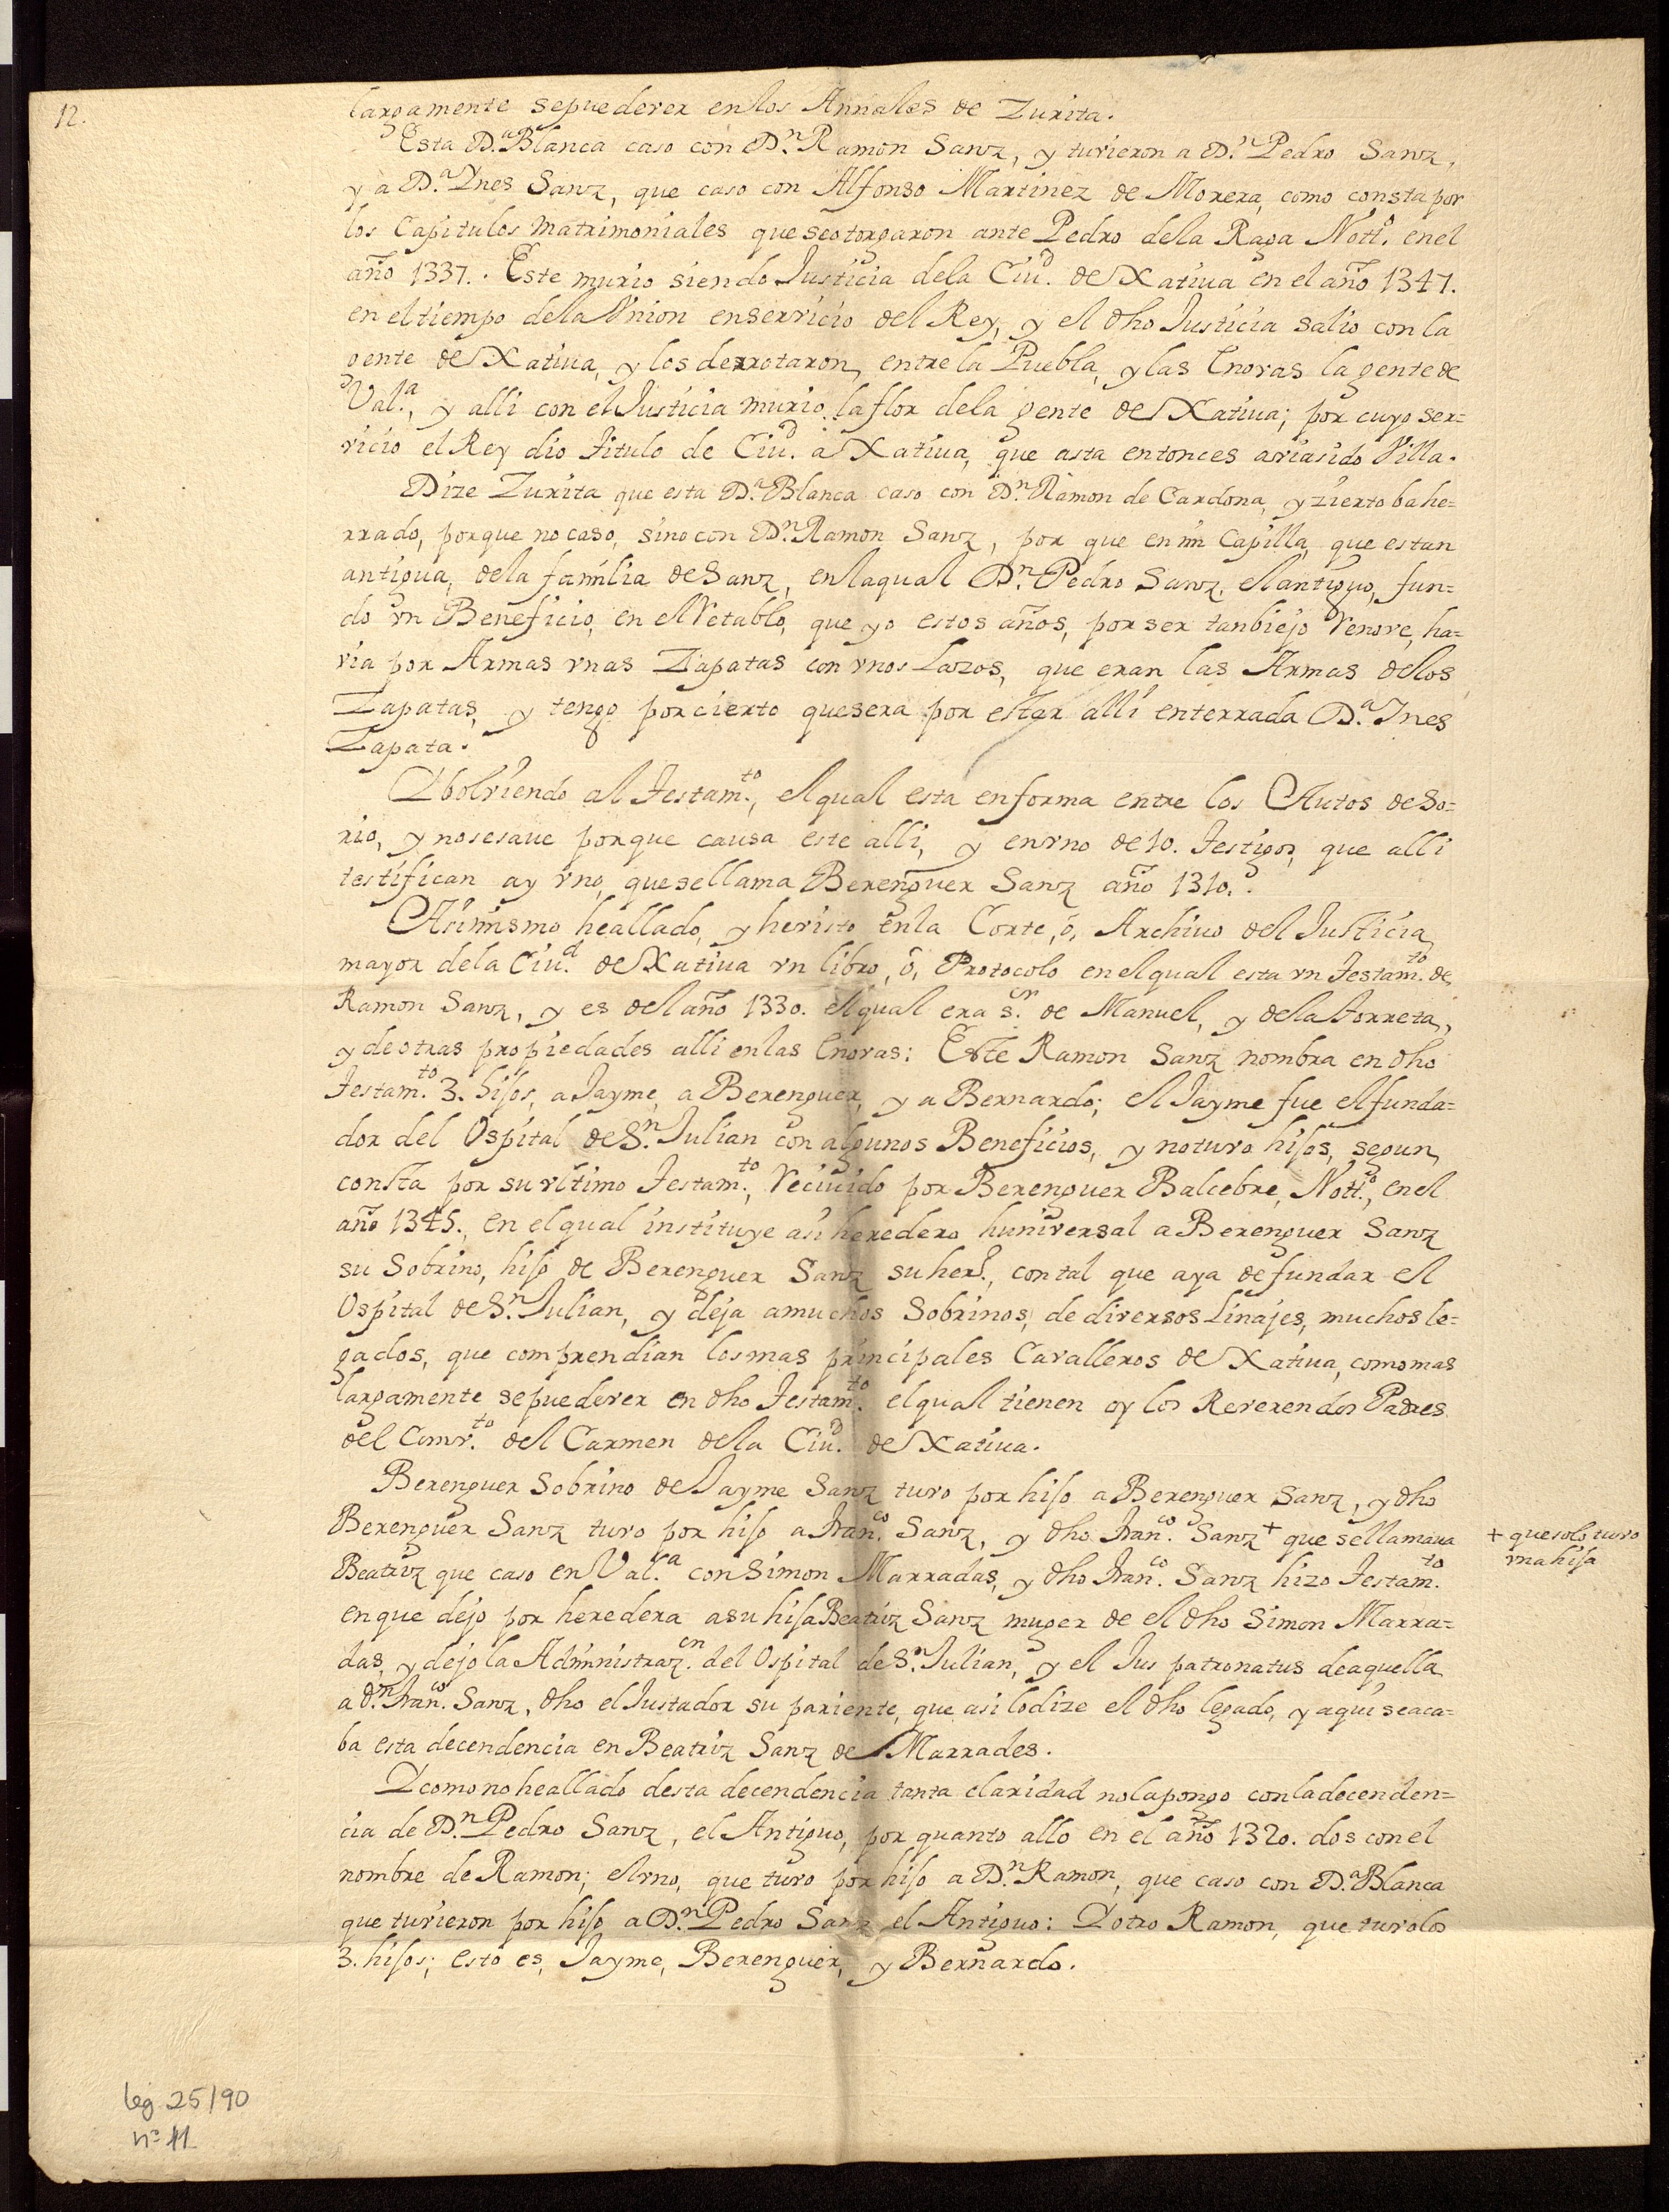 12.
largamente sepuedever enlos Annales de Zurita.
Esta D.ª Blanca caso con D.n Ramon Sanz, y tuvieron a D.n Pedro Sanz,
y a D.ª Ynes Sanz, que caso con Alfonso Martinez de Morera, como consta por
los Capitulos matrimoniales que seotorgaron ante Pedro dela Raga Nott.o enel
año 1337. Este murio siendo Justicia dela Ciu.d de Xativa en el año 1347.
en eltiempo dela Vnion enservicio del Rey, y el dho Justicia salio con la
gente de Xativa, y los derrotaron, entre la Puebla, y las Enovas la gente de
Val.ª, y alli con el Justicia murio la flor dela gente de Xativa; por cuyo ser=
vicio el Rey dio titulo de Ciu.d a Xativa, que asta entonces aviasido Villa.
Dize Zurita que esta D.ª Blanca caso con D.n Ramon de Cardona, y zierto bahe=
rrado, porque no caso, sino con D.n Ramon Sanz, por que en mi Capilla, que estan
antigua, dela familia de Sanz, enlaqual D.n Pedro Sanz, el antiguo, fun=
do vn Beneficio, en el Retablo, que yo estos años, por ser tanbiejo Renove, ha=
via por Armas vnas Zapatas con vnos Lazos, que eran las Armas delos
Zapatas, y tengo porcierto quesera por estar alli enterrada D.ª Ines
Zapata.
Ybolviendo al Testam.to, elqual esta enforma entre los Autos de So=
rio, y nosesave porque causa este alli, y envno de 10. Testigos, que alli
testifican ay vno, quesellama Berenguer Sanz año 1310.
Asimismo heallado, y hevisto enla Corte, ó, Archivo del Justicia
mayor dela Ciu.d de Xativa vn libro, ó, Protocolo enelqual esta vn Testam.to de
Ramon Sanz, y es del año 1330. elqual era s.or de Manuel, y dela Torreta,
y deotras propiedades alli enlas Enovas: Este Ramon Sanz nombra en dho
Testam.to 3. hijos, a Jayme, a Berenguer, y a Bernardo; el Jayme fue elfunda=
dor del Ospital de S.n Julian con algunos Beneficios, y notuvo hijos, segun
consta por su vltimo Testam.to, Recivido por Berenguer Balcebre, Nott.o, enel
año 1345., en elqual instituye asi heredero huniversal a Berenguer Sanz
su Sobrino, hijo de Berenguer Sanz su her.o, contal que aya defundar el
Ospital de S.n Julian, y deja amuchos Sobrinos, de diversos Linajes, muchos le=
gados, que comprendian losmas principales Cavalleros de Xativa, comomas
largamente sepuedever en dho Testam.to elqual tienen oy los Reverendos Padres
del Comv.to del Carmen dela Ciu.d de Xativa.
Berenguer Sobrino de Jayme Sanz tuvo por hijo a Berenguer Sanz, y dho
Berenguer Sanz tuvo por hijo a Fran.co Sanz, y dho Fran.co Sanz + que sellamava
+ quesolo tuvo
vna hija
Beatriz que caso en Val.ª con Simon Marradas, y dho Fran.co Sanz hizo Testam.to
enque dejo por heredera asu hija Beatriz Sanz muger de el dho Simon Marra=
das, y dejo la Administraz.on del Ospital de S.n Julian, y el Jus patronatus deaquella
a d.n Fran.co Sanz, dho el Justador su pariente, que asi lodize el dho legado, y aqui seaca=
ba esta decendencia en Beatriz Sanz de Marrades.
Ycomo no heallado desta decendencia tanta claridad nolapongo conladecenden=
cia de D.n Pedro Sanz, el Antiguo, por quanto allo en el año 1320. dos conel
nombre de Ramon; elvno, que tuvo por hijo a D.n Ramon, que caso con D.ª Blanca
que tuvieron por hijo a D.n Pedro Sanz el Antiguo: Yotro Ramon, que tuvolos
3. hijos; esto es, Jayme, Berenguer, y Bernardo.
leg 25/90
nº 11